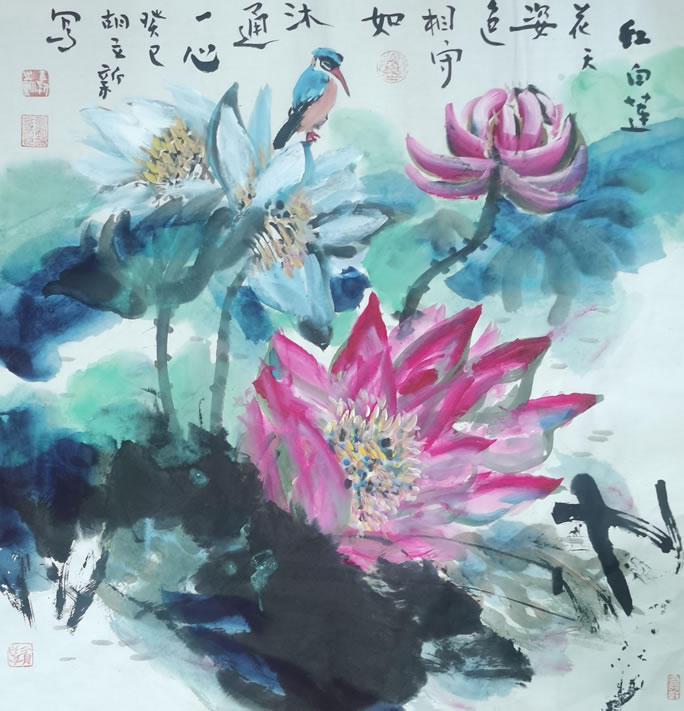 红白莲
花天
姿
色
相守
如
沐
通
一心
癸巳
胡立新
写